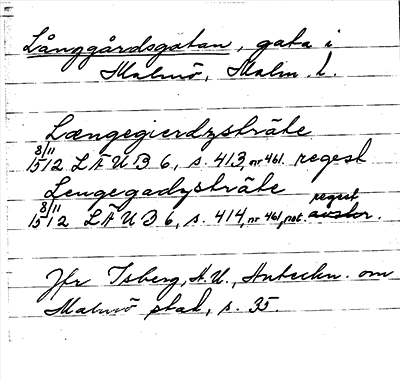 Långgårdsgatan, gata i
Malmö, Malm. l.
Længegierdzsträte
8/11 1512 LÄUB 6, s. 413, nr 461. regest
Lengegadzsträte
8/11 1512 LÄUB 6, s. 414, nr 461, not. regest avskr.
Jfr Isberg, A.U., Anteckn. om
Malmö stad, s. 35.